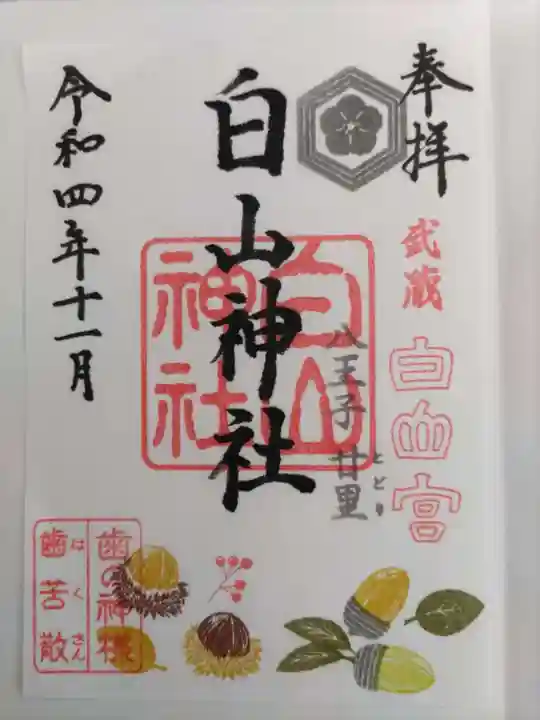 奉拝
武蔵
白山宮
八王子 廿里
とどり
白山神社
白山
神社
令和四年十一月
歯の神様
歯苦散
はくさん